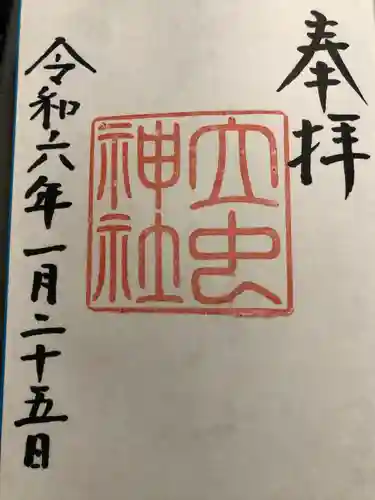 奉拝
立虫
神社
令和六年一月二十五日